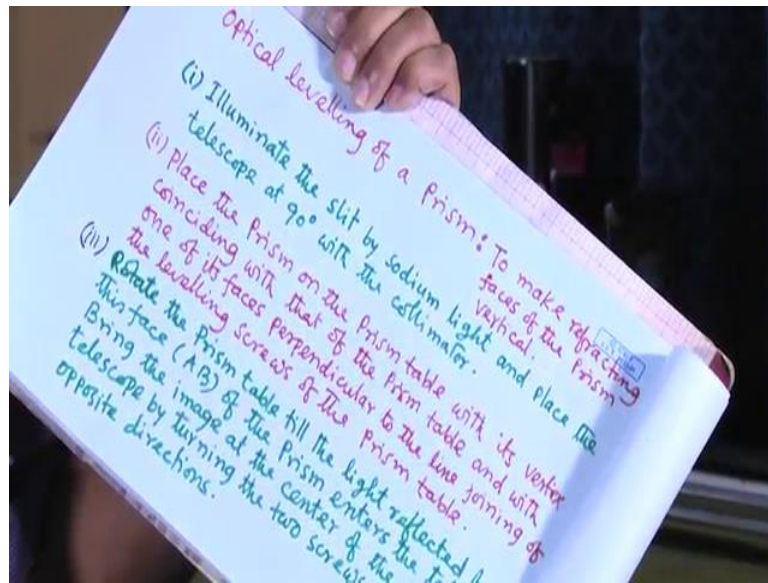 Optical levelling of a Prism: To make refracting
faces of the Prism
vertical.
(i) Illuminate the slit by sodium light and place the
telescope at 90° with the collimator.
(ii) Place the Prism on the Prism table with its vertex
coinciding with that of the Prism table and with
one of its faces perpendicular to the line joining of
the levelling screws of the Prism table.
(iii) Rotate the Prism table till the light reflected
this face (AB) of the Prism enters the
Bring the image at the center of the
telescope by turning the two screws
opposite directions.